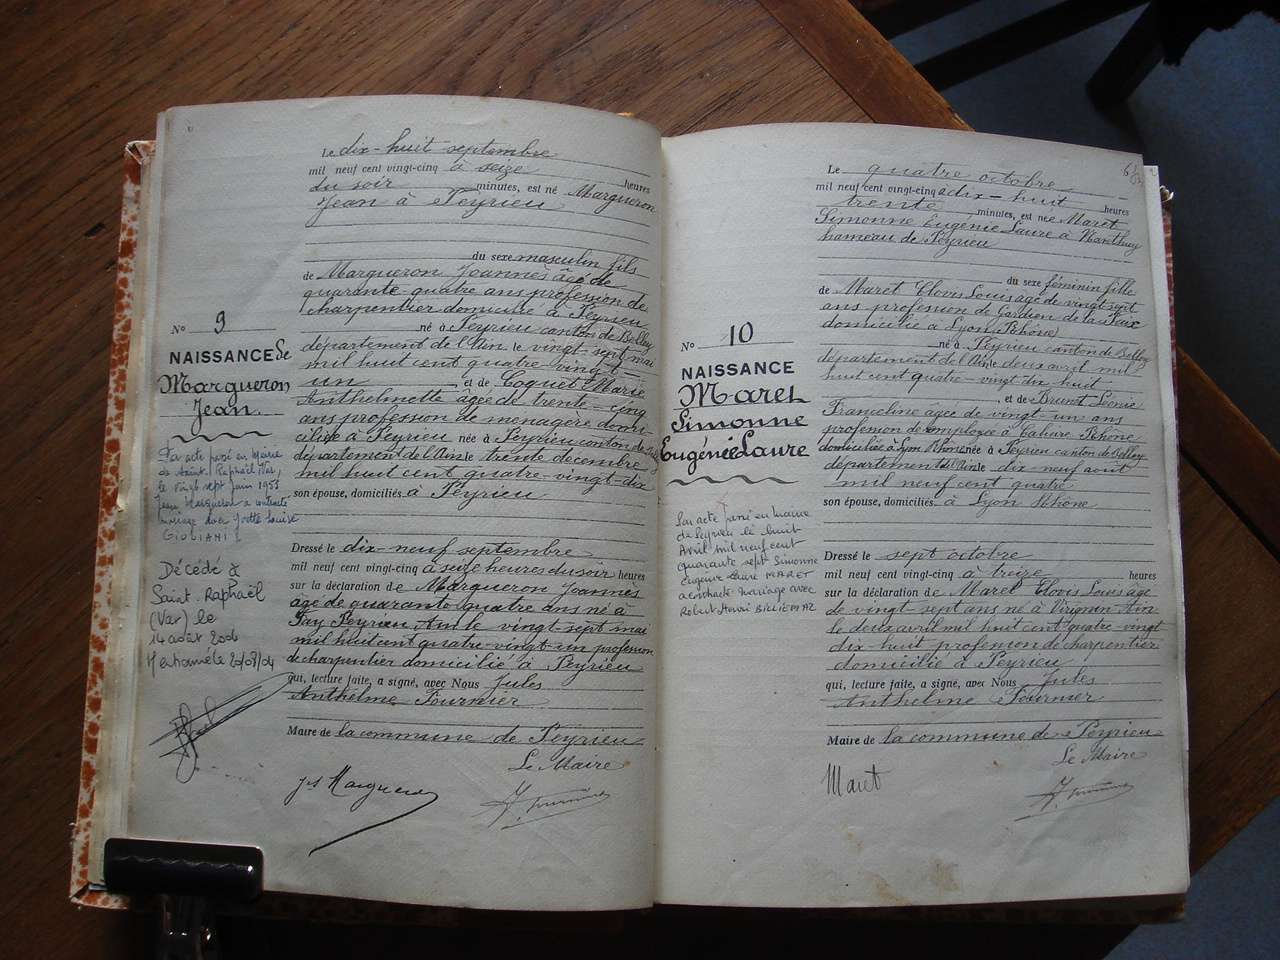 Le dix-huit septembre
mil neuf cent vingt-cinq à seize heures
du soir minutes, est né Margueron
Jean à Peyrieu
du sexe masculin fils
de Margueron Joannès âgé de
quarante-quatre ans profession de
charpentier domicilié à Peyrieu
né à Peyrieu canton de Belley
département de l'Ain le vingt-sept mai
mil huit cent quatre-vingt-
un et de Coquet Marie
Anthelmette âgée de trente-cinq
ans profession de menagère domi-
ciliée à Peyrieu née à Peyrieu canton de
département de l'Ain le trente decembre
mil huit cent quatre-vingt-dix
son épouse, domiciliés à Peyrieu
Dressé le dix-neuf septembre
mil neuf cent vingt-cinq à seize heures du soir heures
sur la déclaration de Margueron Joannès
âgé de quarante quatre ans né à
Peyrieu Ain le vingt-sept mai
mil huit cent quatre-vingt-un profession
de charpentier domicilié à Peyrieu
qui, lecture faite, a signé, avec Nous Jules
Anthelme Fournier
Maire de la commune de Peyrieu
Le Maire
No 9
NAISSANCE de
Margueron
Jean
Par acte passé en Mairie
de Saint-Raphaël Var,
le vingt sept juin 1953
Jean Margueron a contracté
mariage avec Yvette Louise
GIULIANI
Décédé à
Saint-Raphaël
(Var) le
14 août 2006
Le quatre octobre
mil neuf cent vingt-cinq à dix-huit heures
trente minutes, est née Maret
Simonne Eugénie Laure à Nanthuy
hameau de Peyrieu
du sexe féminin fille
de Maret Clovis Louis âgé de vingt-sept
ans profession de Gardien de la Paix
domicilié à Lyon (Rhône)
né à Peyrieu canton de Belley
département de l'Ain le deux avril mil
huit cent quatre-vingt dix huit
et de Brunot Léonie
Francine âgée de vingt-un ans
profession de employée à Caluire Rhône
domiciliée à Lyon Rhône née à Peyrieu canton de Belley
département de l'Ain le dix-neuf août
mil neuf cent quatre
son épouse, domiciliés à Lyon Rhône
Dressé le sept octobre
mil neuf cent vingt-cinq à treize heures
sur la déclaration de Maret Clovis Louis âgé
de vingt sept ans né à Virignin Ain
le deux avril mil huit cent quatre-vingt
dix-huit profession de charpentier
domicilié à Peyrieu
qui, lecture faite, a signé, avec Nous Jules
Anthelme Fournier
Maire de la commune de Peyrieu
Le Maire
Maret
No 10
NAISSANCE
Maret
Simonne
Eugénie Laure
Par acte passé en mairie
de Peyrieu le huit
Avril mil neuf cent
quarante sept Simonne
Eugénie Laure MARET
a contracté mariage avec
Robert Henri BILLIEMAZ